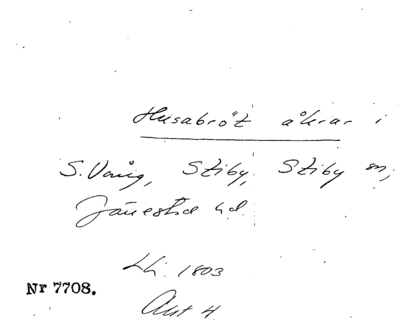 Husabröt åkrar i
S. Vång, Stiby, Stiby sn,
Järrestad hd.
Lh. 1803
Nr 7708.
Akt 4.